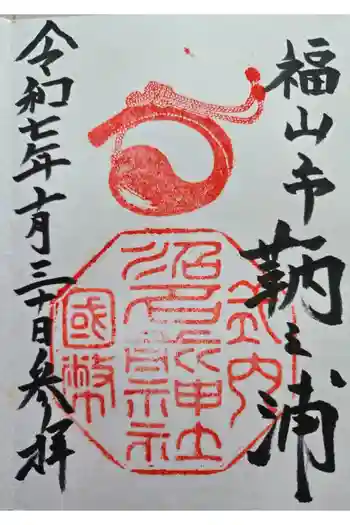 福山市 鞆之浦
式内
沼名前神社
國幣
令和七年十月三十日参拝